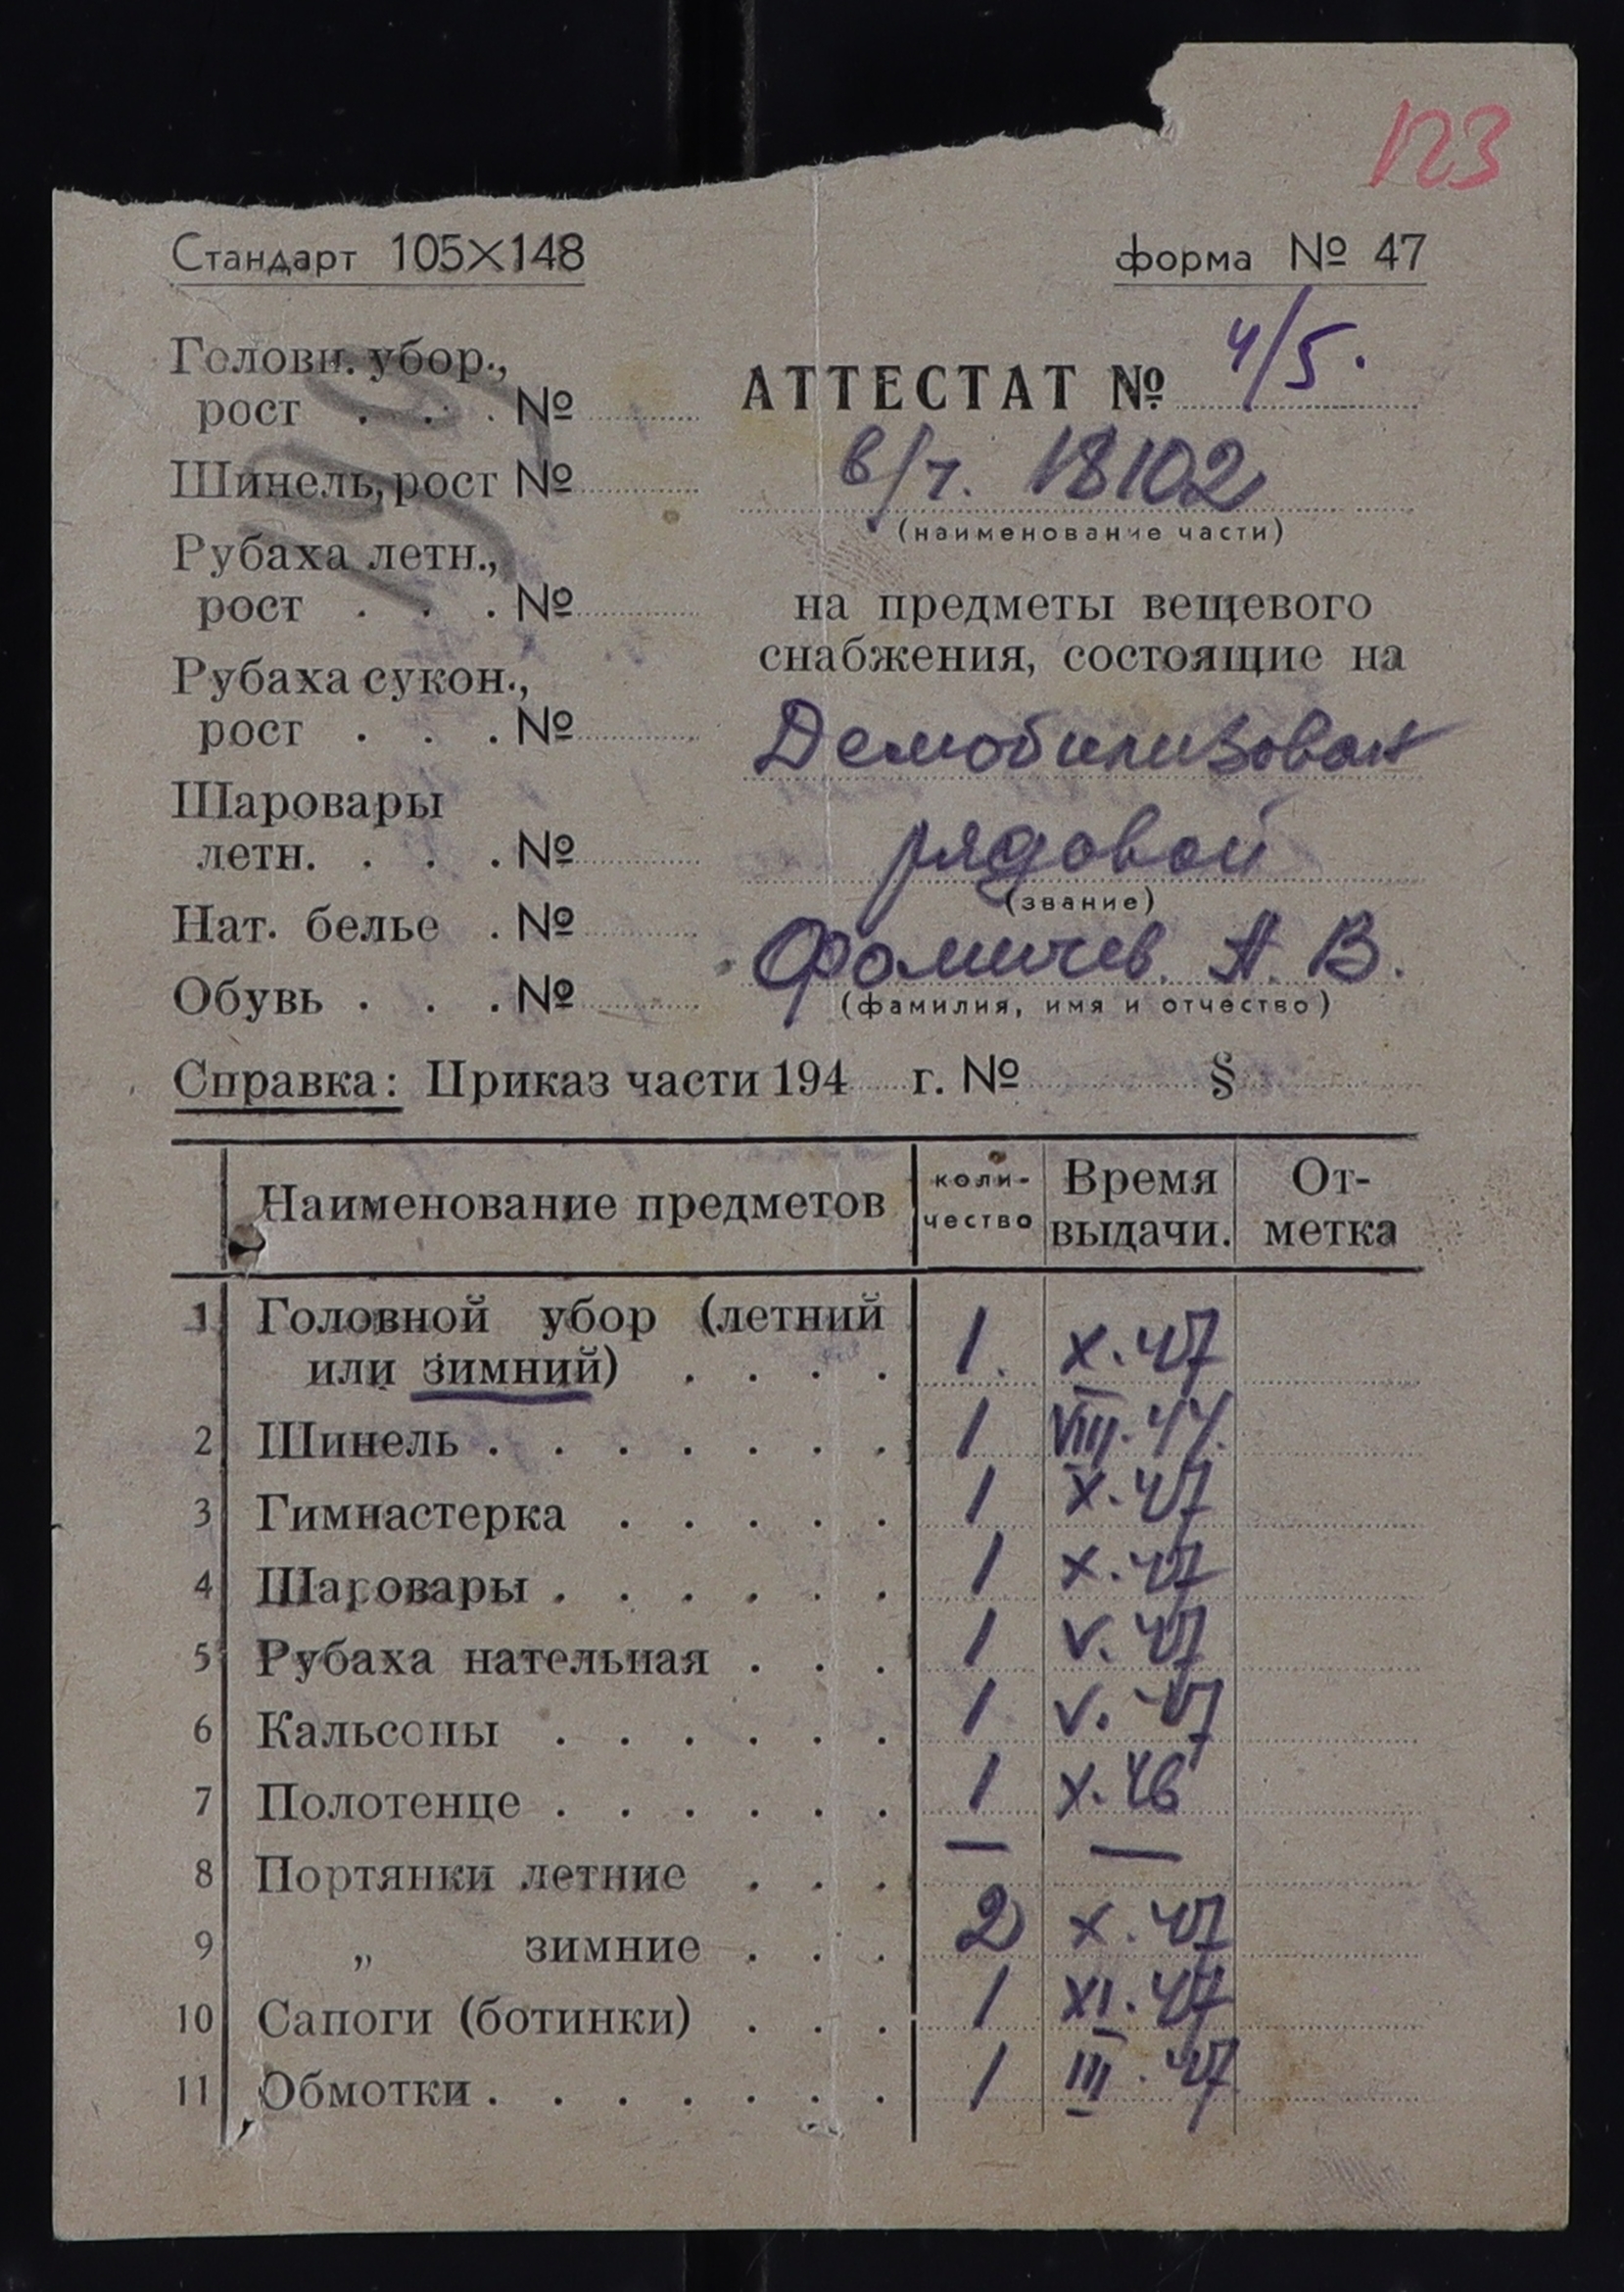 123
Стандарт 105×148
форма № 47
Головн. убор.,
рост . . . №
Шинель, рост №
Рубаха летн.,
рост . . . №
Рубаха сукон.,
рост . . . №
Шаровары
летн. . . . №
Нат. белье . №
Обувь . . . №
АТТЕСТАТ № 4/5.
в/ч. 18102
(наименование части)
на предметы вещевого
снабжения, состоящие на
Демобилизован
рядовой
(звание)
Фомичев. А. В.
(фамилия, имя и отчество)
Справка: Приказ части 194 г. № §
Наименование предметов коли-чество Время выдачи. От-метка
1 Головной убор (летний
или зимний) . . . . 1. X. 47
2 Шинель . . . . . . . 1 VIII. 44.
3 Гимнастерка . . . . . 1 X. 47
4 Шаровары . . . . . . 1 X. 47
5 Рубаха нательная . . . 1 V. 47
6 Кальсоны . . . . . . 1 V. 47
7 Полотенце . . . . . . 1 X. 46
8 Портянки летние . . . — —
9 „ зимние . . . 2 X. 47
10 Сапоги (ботинки) . . . 1 XI. 47
11 Обмотки . . . . . . . 1 III. 47